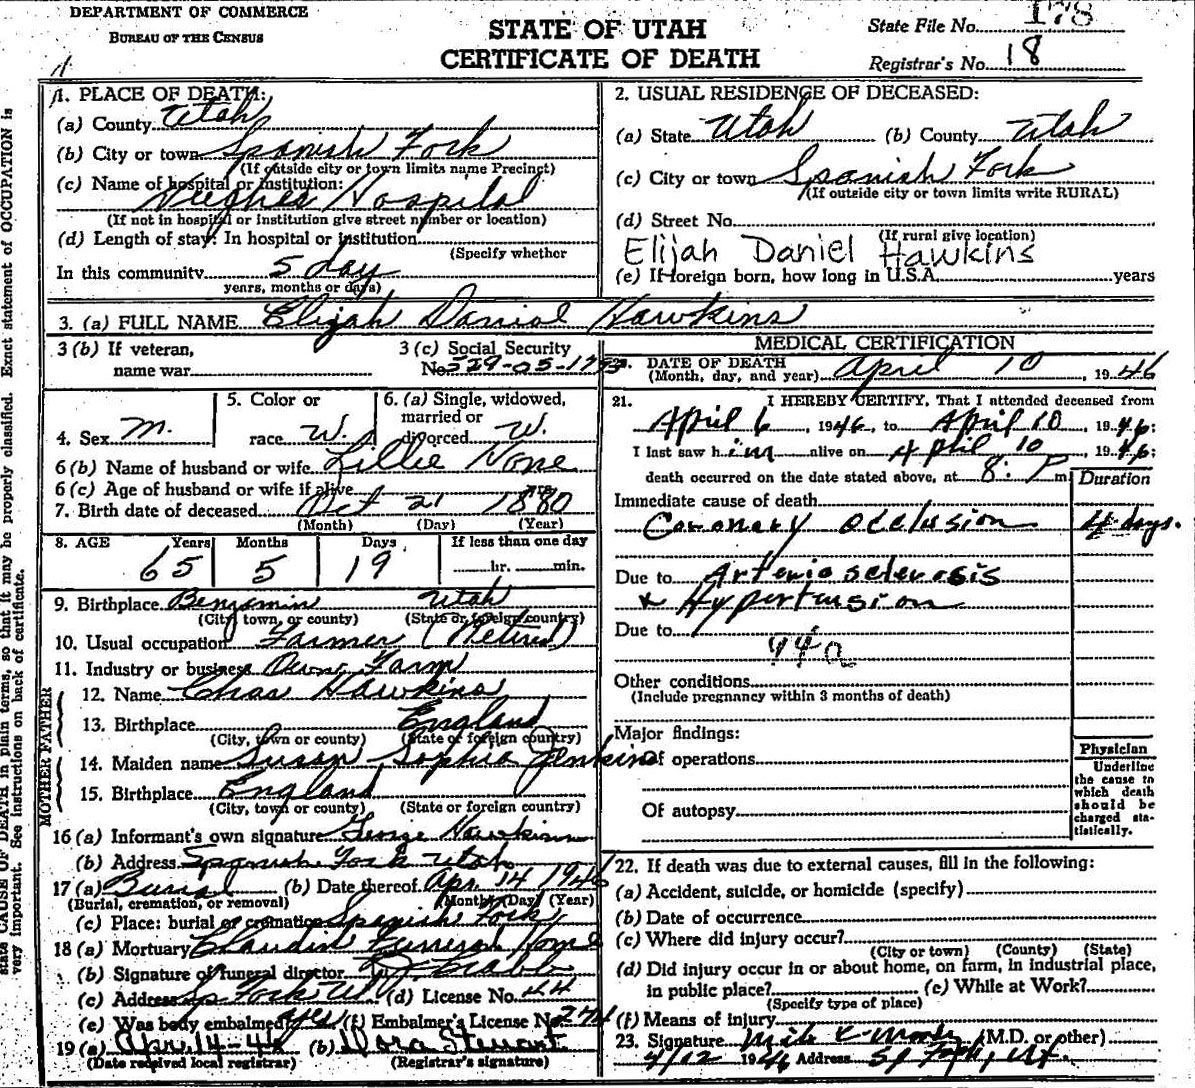 DEPARTMENT OF COMMERCE
BUREAU OF THE CENSUS
STATE OF UTAH
CERTIFICATE OF DEATH
State File No. 178
Registrar's No. 18
1. PLACE OF DEATH:
(a) County Utah
(b) City or town Spanish Fork
(If outside city or town limits name Precinct)
(c) Name of hospital or institution:
Hughes Hospital
(If not in hospital or institution give street number or location)
(d) Length of stay: In hospital or institution
(Specify whether
In this community 5 day
years, months or days)
2. USUAL RESIDENCE OF DECEASED:
(a) State Utah (b) County Utah
(c) City or town Spanish Fork
(If outside city or town limits write RURAL)
(d) Street No.
(If rural give location)
Elijah Daniel Hawkins
(e) If foreign born, how long in U.S.A. years
3. (a) FULL NAME Elijah Daniel Hawkins
3 (b) If veteran,
name war
3 (c) Social Security
No. 529-05-1753
4. Sex M.
5. Color or
race W.
6. (a) Single, widowed,
married or
divorced W.
6 (b) Name of husband or wife Lillie Hone
6 (c) Age of husband or wife if alive yrs.
7. Birth date of deceased Oct 21 1880
(Month) (Day) (Year)
8. AGE Years Months Days If less than one day
65 5 19 hr. min.
9. Birthplace Benjamin Utah
(City, town, or county) (State or foreign country)
10. Usual occupation Farmer (Retired)
11. Industry or business Own Farm
FATHER
12. Name Chas Hawkins
13. Birthplace England
(City, town or county) (State or foreign country)
MOTHER
14. Maiden name Susan Sophia Jenkins
15. Birthplace England
(City, town or county) (State or foreign country)
16 (a) Informant's own signature George Hawkins
(b) Address Spanish Fork Utah
17 (a) Burial (b) Date thereof Apr. 14 1946
(Burial, cremation, or removal) (Month) (Day) (Year)
(c) Place: burial or cremation Spanish Fork
18 (a) Mortuary Claudin Funeral Home
(b) Signature of funeral director
(c) Address Sp Fork Ut (d) License No. 44
(e) Was body embalmed? yes (f) Embalmer's License No. 274
19 (a) Apr. 14-46 (b) Dora Stewart
(Date received local registrar) (Registrar's signature)
MEDICAL CERTIFICATION
20. DATE OF DEATH
(Month, day, and year) April 10, 1946
21. I HEREBY CERTIFY, That I attended deceased from
April 6, 1946, to April 10, 1946;
I last saw him alive on April 10, 1946;
death occurred on the date stated above, at 8: P m
Duration
Immediate cause of death
Coronary occlusion 4 days.
Due to Arteriosclerosis
& Hypertension
Due to
94a
Other conditions
(Include pregnancy within 3 months of death)
Major findings:
Of operations
Of autopsy
Physician
Underline
the cause to
which death
should be
charged sta-
tistically.
22. If death was due to external causes, fill in the following:
(a) Accident, suicide, or homicide (specify)
(b) Date of occurrence
(c) Where did injury occur?
(City or town) (County) (State)
(d) Did injury occur in or about home, on farm, in industrial place,
in public place? (e) While at Work?
(Specify type of place)
(f) Means of injury
23. Signature (M.D. or other)
4/12 1946 Address Sp Fork, Ut.
state CAUSE OF DEATH in plain terms, so that it may be properly classified. Exact statement of OCCUPATION is
very important. See instructions on back of certificate.